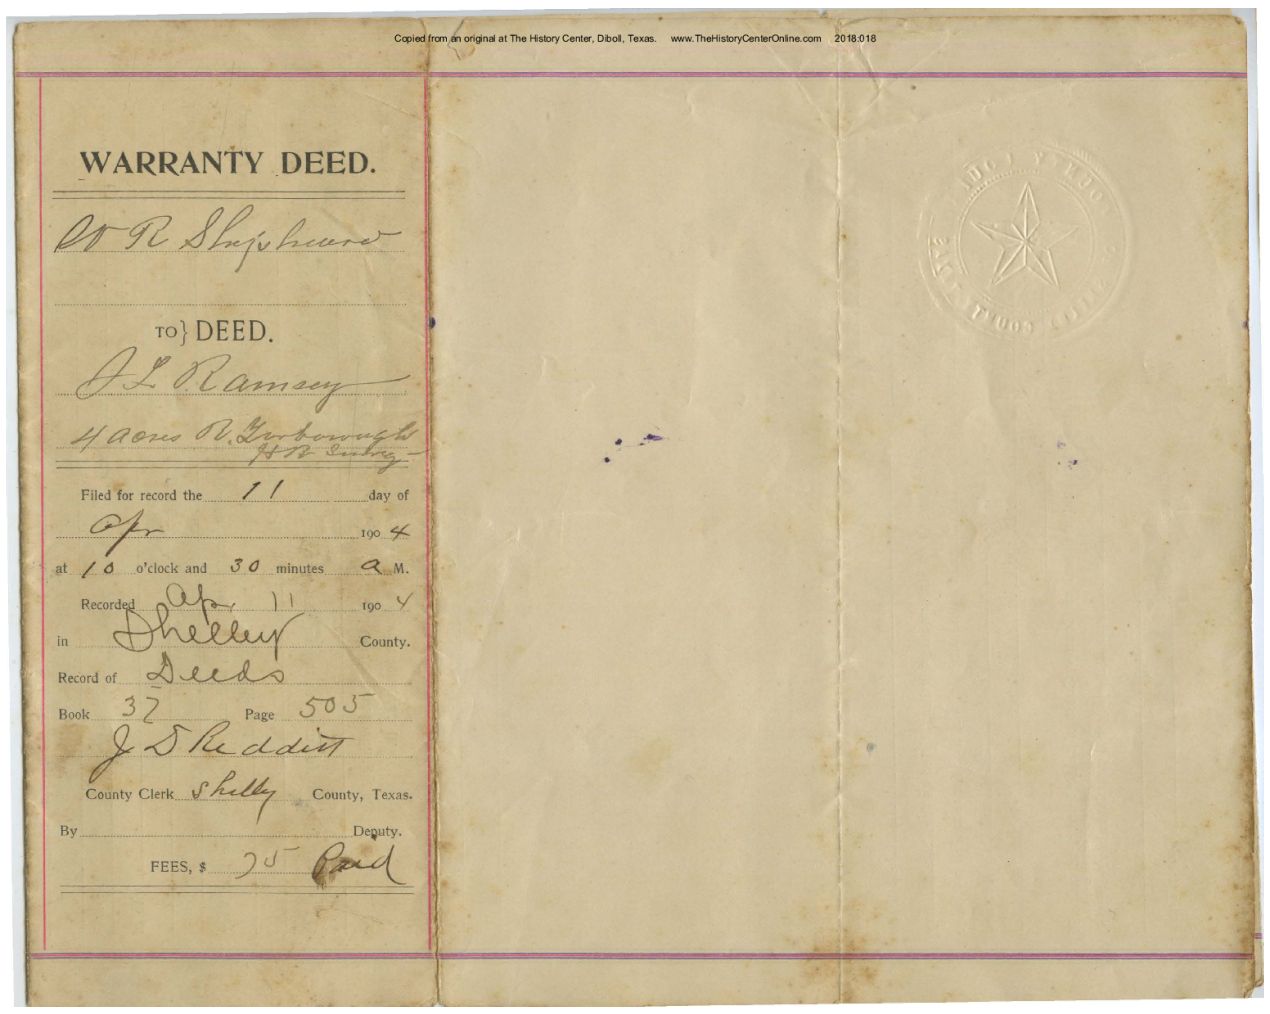 Copied from an original at The History Center, Diboll, Texas. www.TheHistoryCenterOnline.com 2018:018
WARRANTY DEED.
W R Shipheard
TO} DEED.
J L Ramsey
4 acres R. Yorborough
H R Survey
Filed for record the 11 day of
Apr 1904
at 10 o'clock and 30 minutes a M.
Recorded Ap. 11 1904
in Shelley County.
Record of Deeds
Book 37 Page 505
J D Redditt
County Clerk Shelly County, Texas.
By Deputy.
FEES, $ 75 Paid